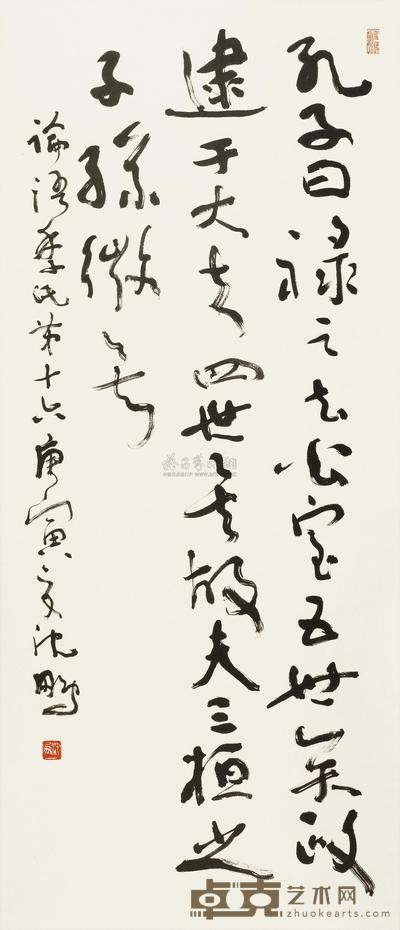 孔子曰禄之去公室五世矣政
逮于大夫四世矣故夫三桓之
子孙微矣
论语季氏第十六庚寅夏沈鹏
卓克艺术网
zhuokearts.com